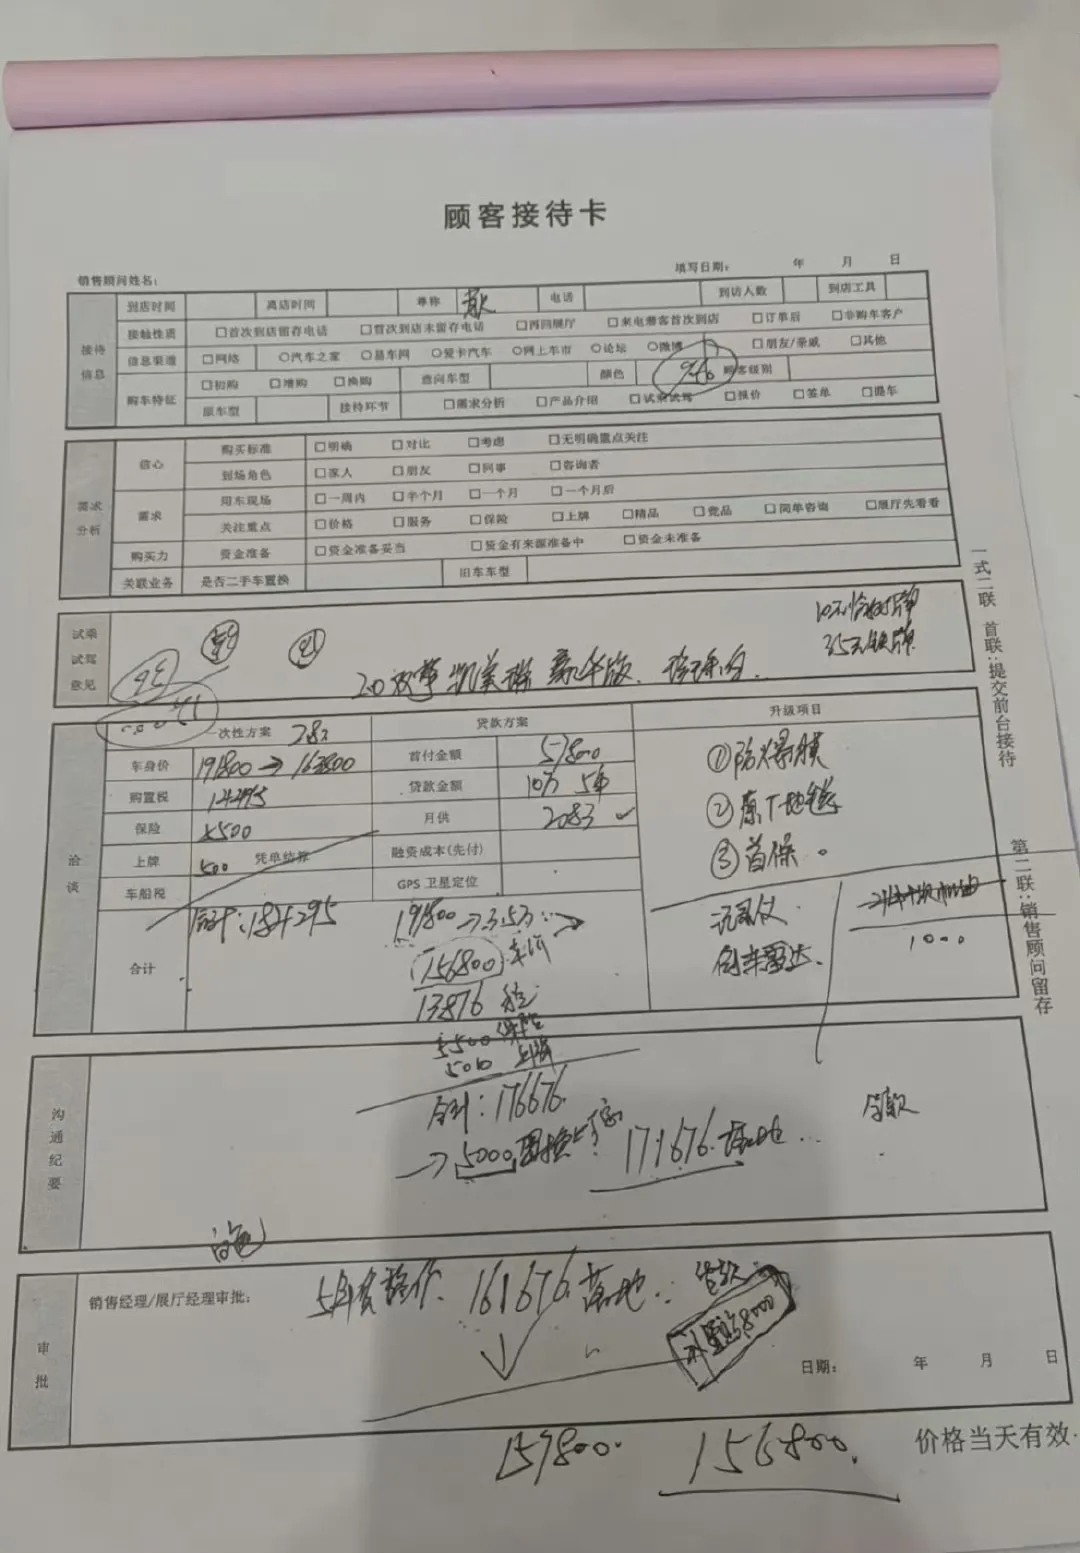 顾客接待卡
销售顾问姓名： 填写日期： 年 月 日
接待信息
到店时间 离店时间 尊称 电话 到访人数 到店工具
接触性质 □首次到店留存电话 □首次到店未留存电话 □再回展厅 □来电潜客首次到店 □订单后 □非购车客户
信息渠道 □网络 ○汽车之家 ○易车网 ○爱卡汽车 ○网上车市 ○论坛 ○微博 □朋友/亲戚 □其他
购车特征 □初购 □增购 □换购 意向车型 颜色 顾客级别
原车型 接待环节 □需求分析 □产品介绍 □试乘试驾 □报价 □签单 □提车
需求分析
信心 购买标准 □明确 □对比 □考虑 □无明确重点关注
到场角色 □家人 □朋友 □同事 □咨询者
需求 用车现场 □一周内 □半个月 □一个月 □一个月后
关注重点 □价格 □服务 □保险 □上牌 □精品 □竞品 □简单咨询 □展厅先看看
购买力 资金准备 □资金准备妥当 □资金有来源准备中 □资金未准备
关联业务 是否二手车置换 旧车车型
一式二联 首联：提交前台接待
第二联：销售顾问留存
试乘试驾意见
2.0双擎凯美瑞豪华版 珍珠白
洽谈
一次性方案 贷款方案 升级项目
车身价 191800→163800 首付金额 57800 ①防爆膜
购置税 14495 贷款金额 10万 5年 ②原厂地毯
保险 5500 月供 2083 ③首保
上牌 500 凭单结算 融资成本(先付)
车船税 GPS 卫星定位
合计 合计：184295 191800→3.5万
记录仪
倒车雷达
1000
156800 车价
13876 税
5500 保险
500 上牌
沟通纪要
合计：176676
→5000置换 171676 落地
白色
审批
销售经理/展厅经理审批：
5年贷 161676 落地 贷款
补贴8000
日期： 年 月 日
159800 156800
价格当天有效